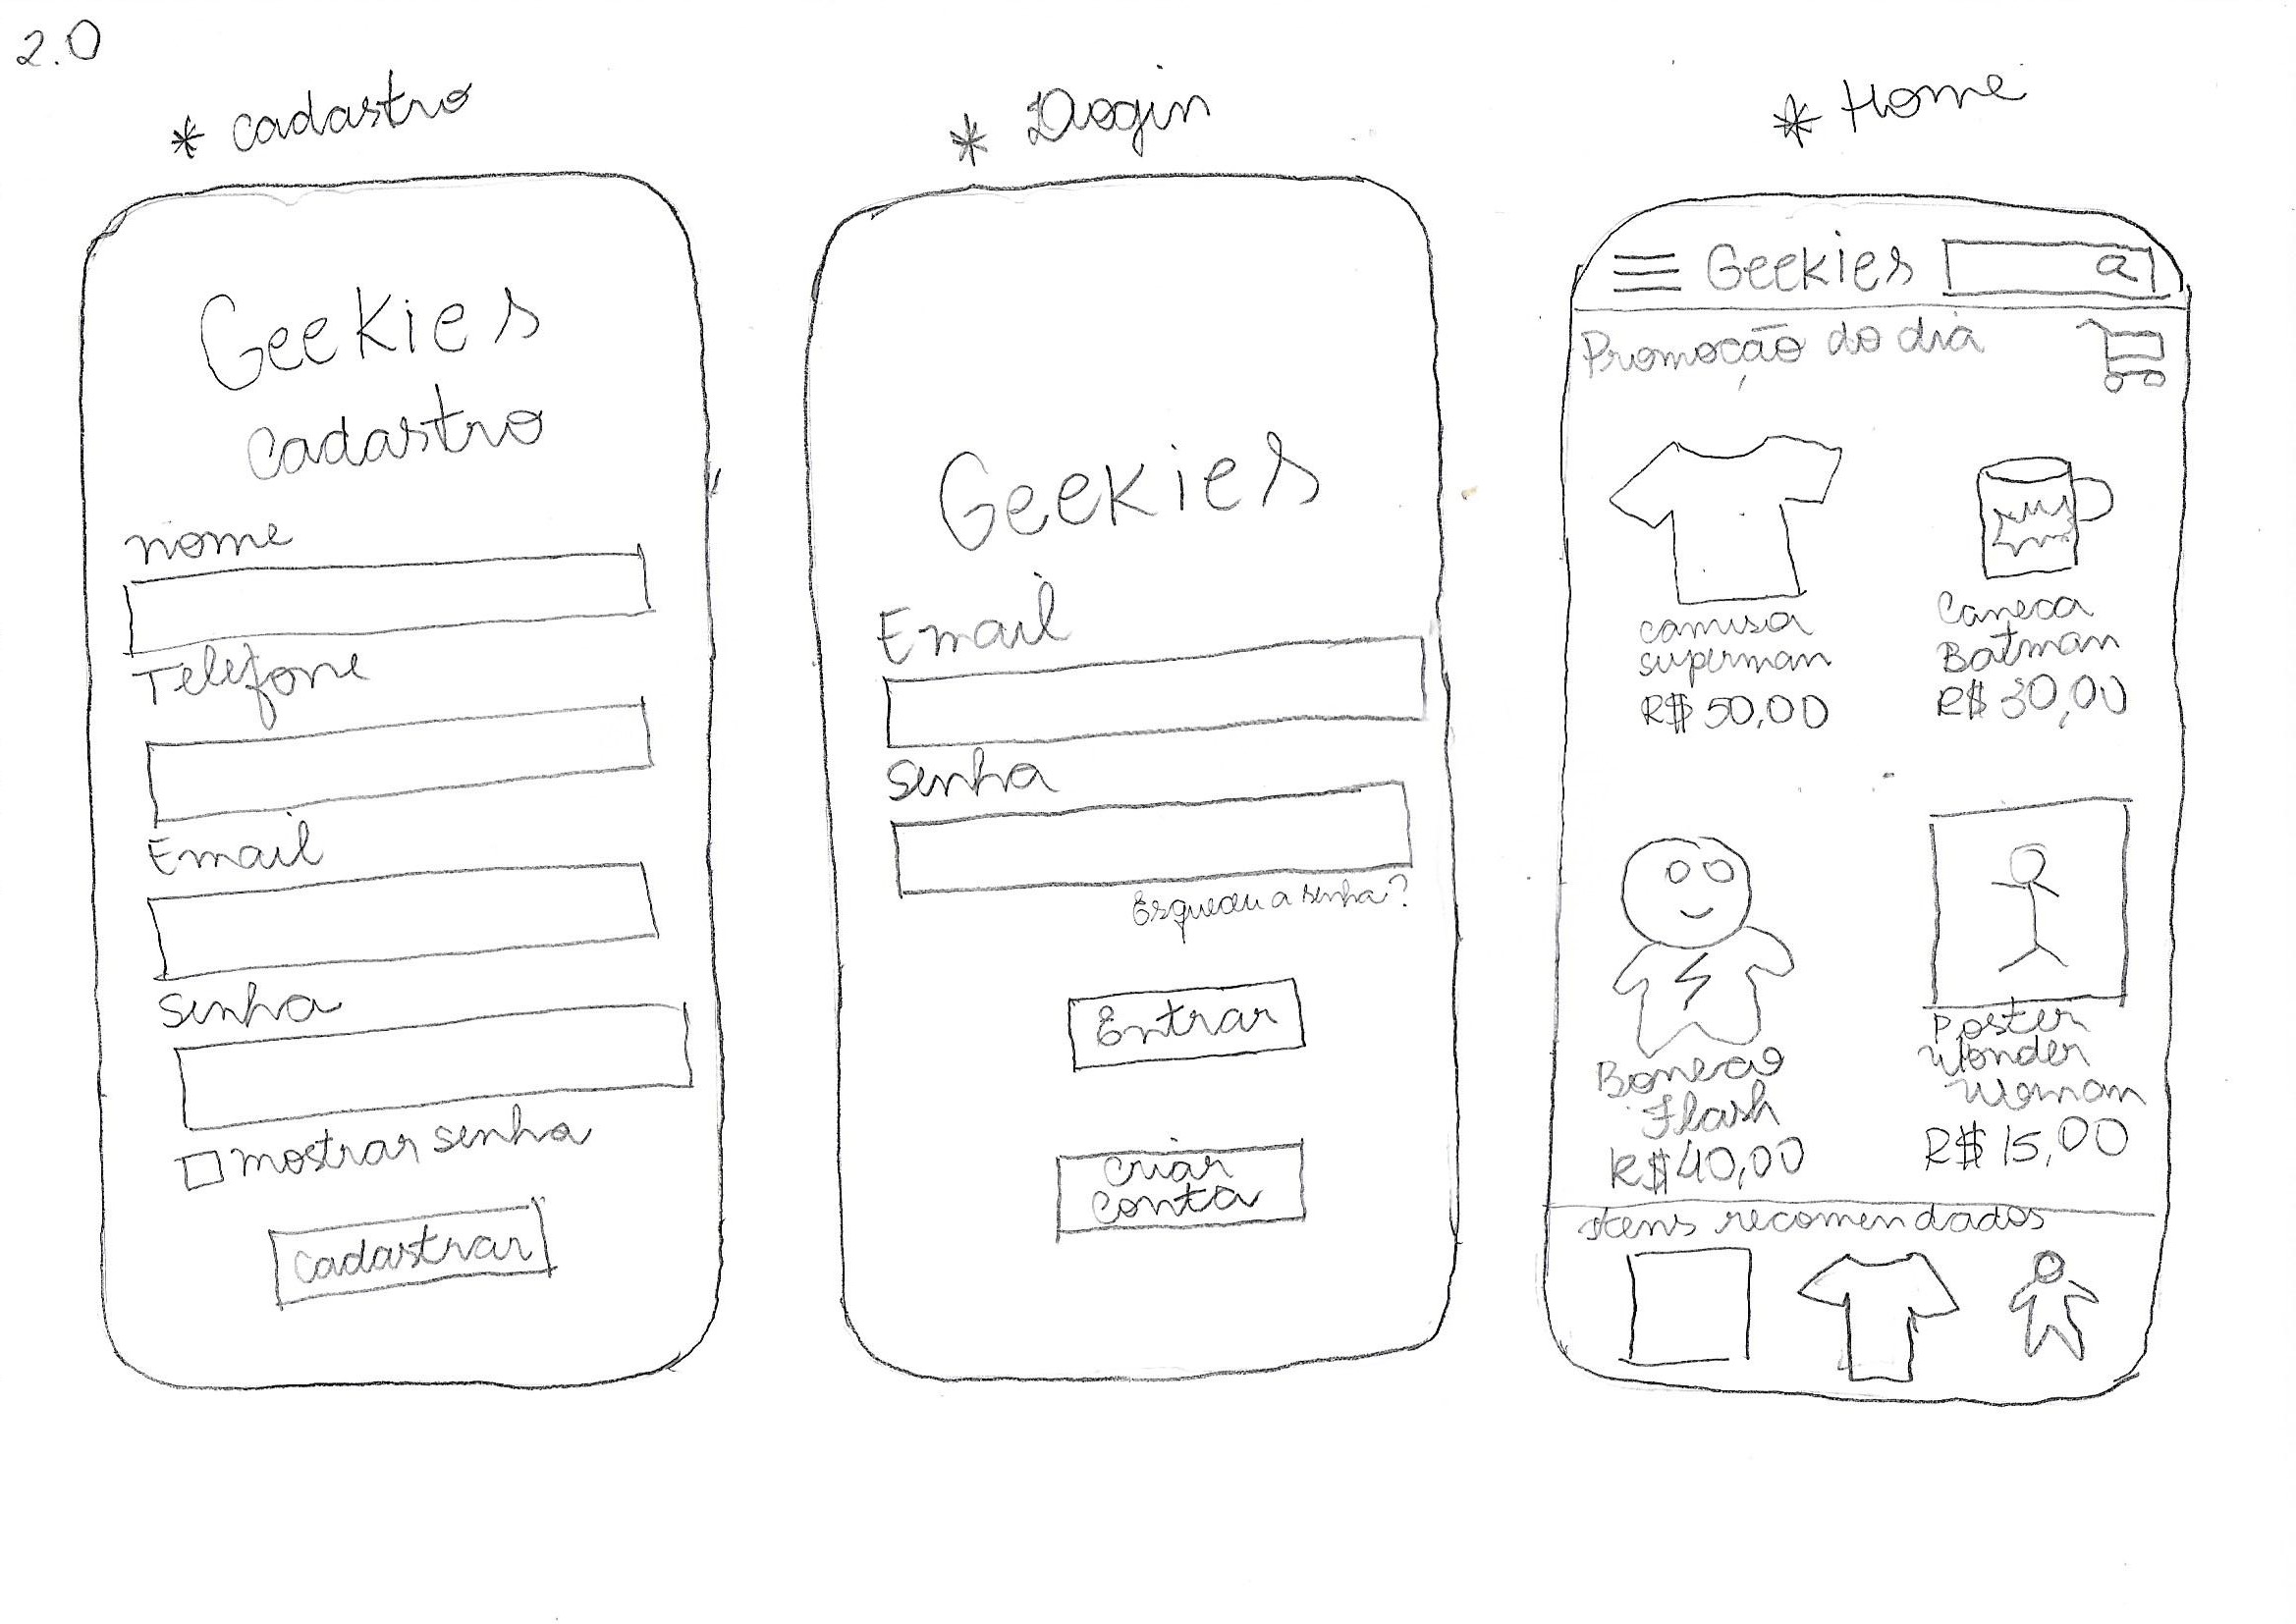 2.0
* cadastro
Geekies
cadastro
nome
Telefone
Email
senha
mostrar senha
cadastrar
* Login
Geekies
Email
senha
Esqueceu a senha?
Entrar
criar
conta
* Home
Geekies
Promoção do dia
camisa
superman
R$ 50,00
Caneca
Batman
R$ 30,00
Boneco
Flash
R$ 40,00
Poster
Wonder
Woman
R$ 15,00
itens recomendados